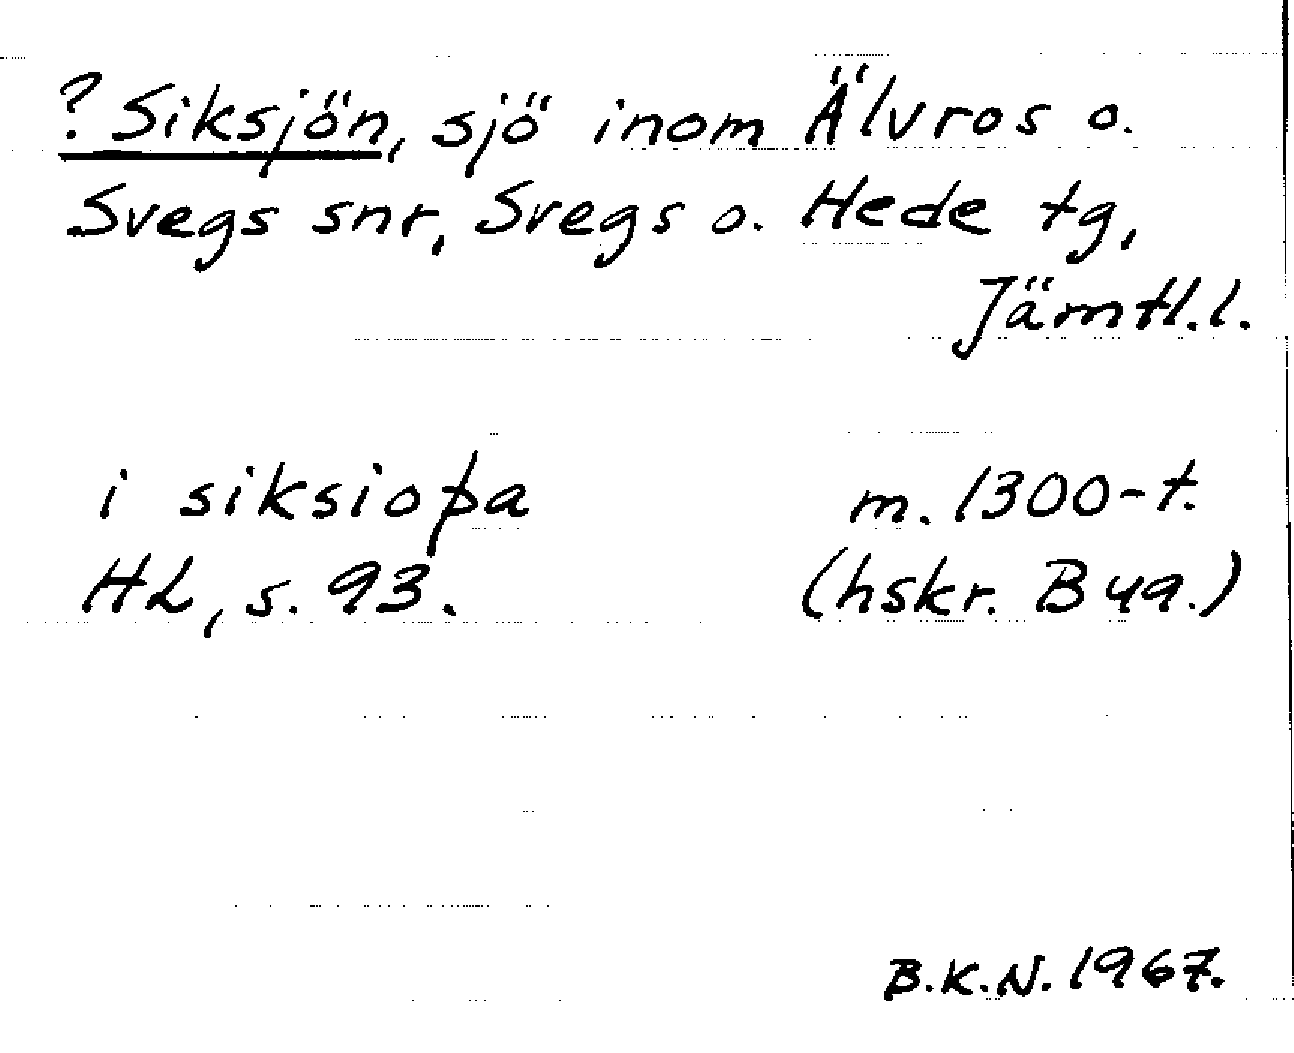 ? Siksjön, sjö inom Älvros o.
Svegs snr, Svegs o. Hede tg,
Jämtl.l.
i siksioþa m. 1300-t.
HL, s. 93. (hskr. B 49.)
B.K.N. 1967.